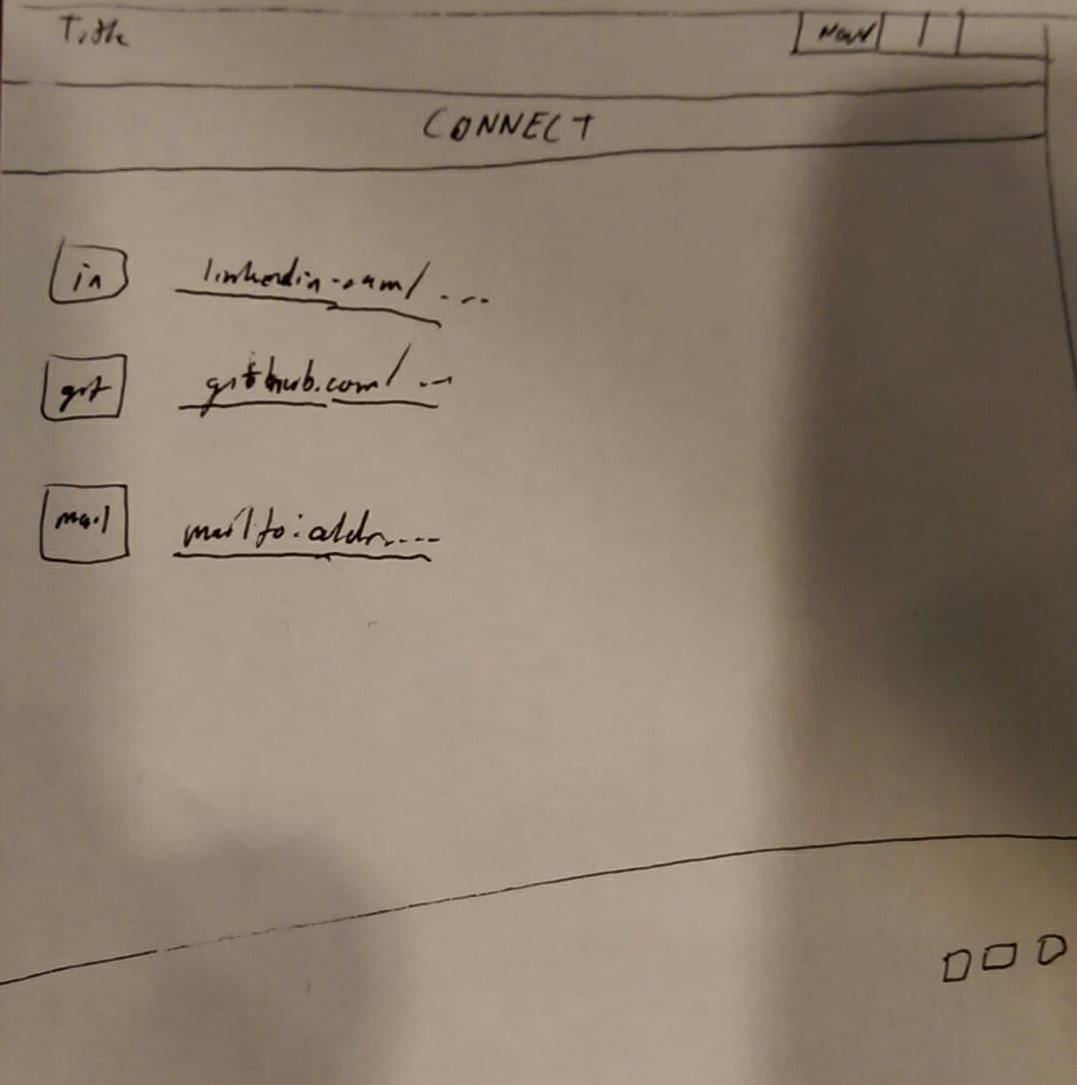 Title
NAV
CONNECT
in linkedin.com/ ...
git github.com/ ...
mail mailto:addr....